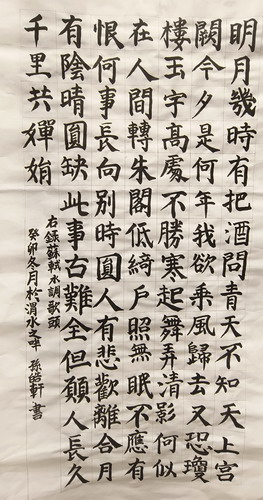 明月幾時有把酒問青天不知天上宮
闕今夕是何年我欲乘風歸去又恐瓊
樓玉宇髙處不勝寒起舞弄清影何似
在人間轉朱閣低綺戶照無眠不應有
恨何事長向別時圓人有悲歡離合月
有陰晴圓缺此事古難全但願人長久
千里共嬋娟
右錄蘇軾水調歌頭
癸卯冬月於渭水之畔 孫皓軒書